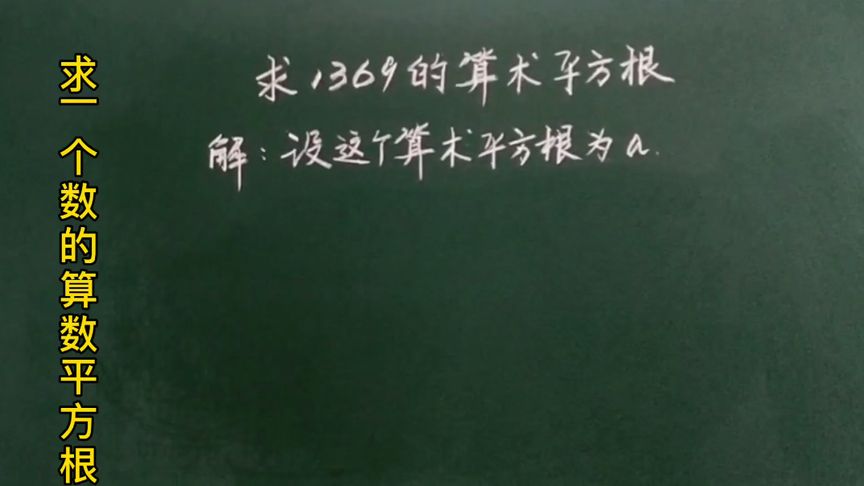 求一个数的算数平方根
求1369的算术平方根
解：设这个算术平方根为a.